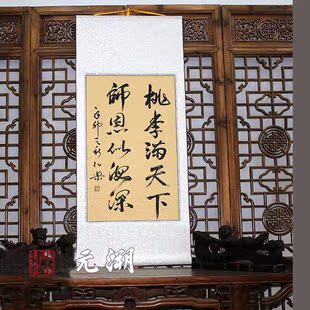 桃李满天下
师恩似海深
元潮